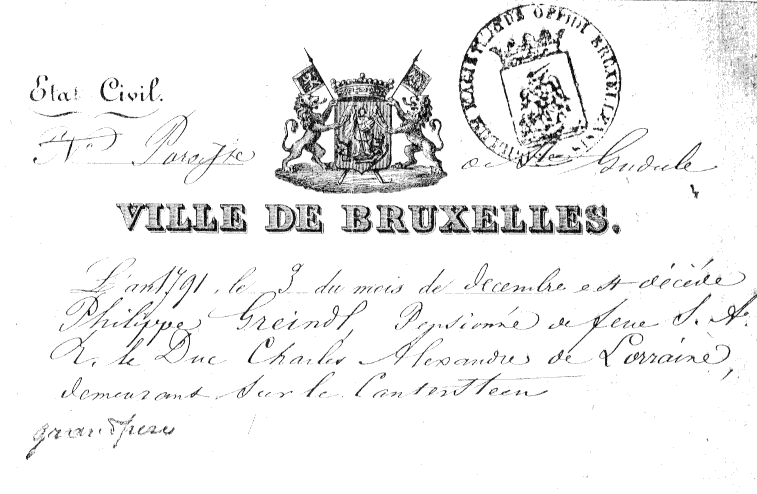 Etat Civil.
N° Paroisse de Ste Gudule
VILLE DE BRUXELLES.
L'an 1791, le 3 du mois de decembre est décédé
Philippe Greindl, Pensionné de feue S. A.
R. le Duc Charles Alexandre de Lorraine,
demeurant sur le Cantersteen
grandpere